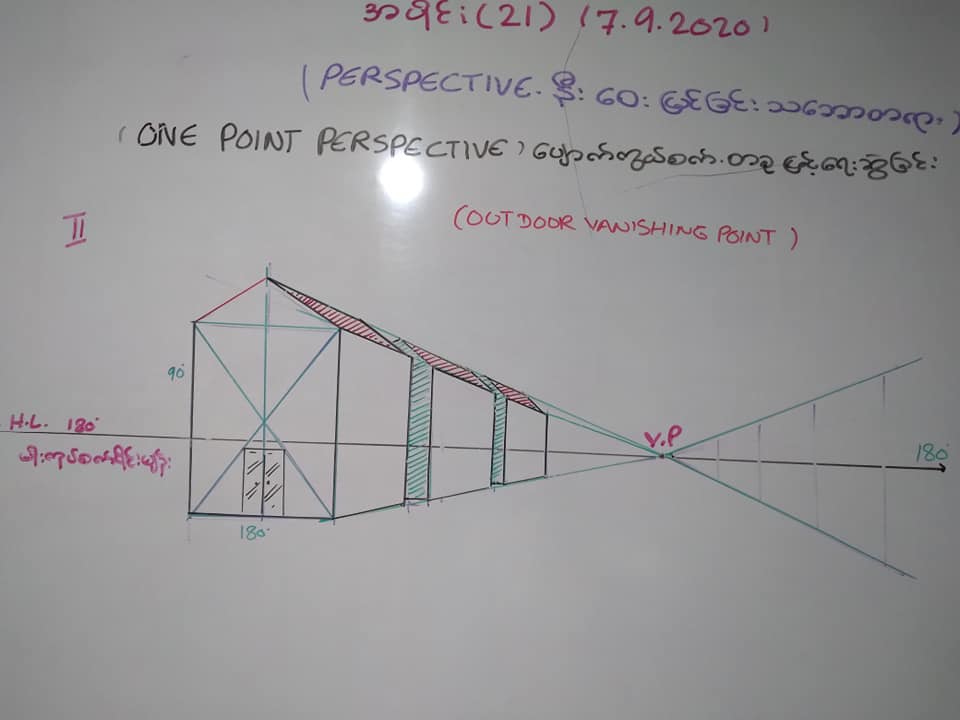 အပိုင်း (21) (7.9.2020)
(PERSPECTIVE. နီး ဝေး မြင်ခြင်း သဘောတရား)
(ONE POINT PERSPECTIVE) ပျောက်ကွယ်စက် တခု ဖြင့် ရေးဆွဲခြင်း
II
(OUTDOOR VANISHING POINT)
90°
H.L. 180°
V.P
180°
180°